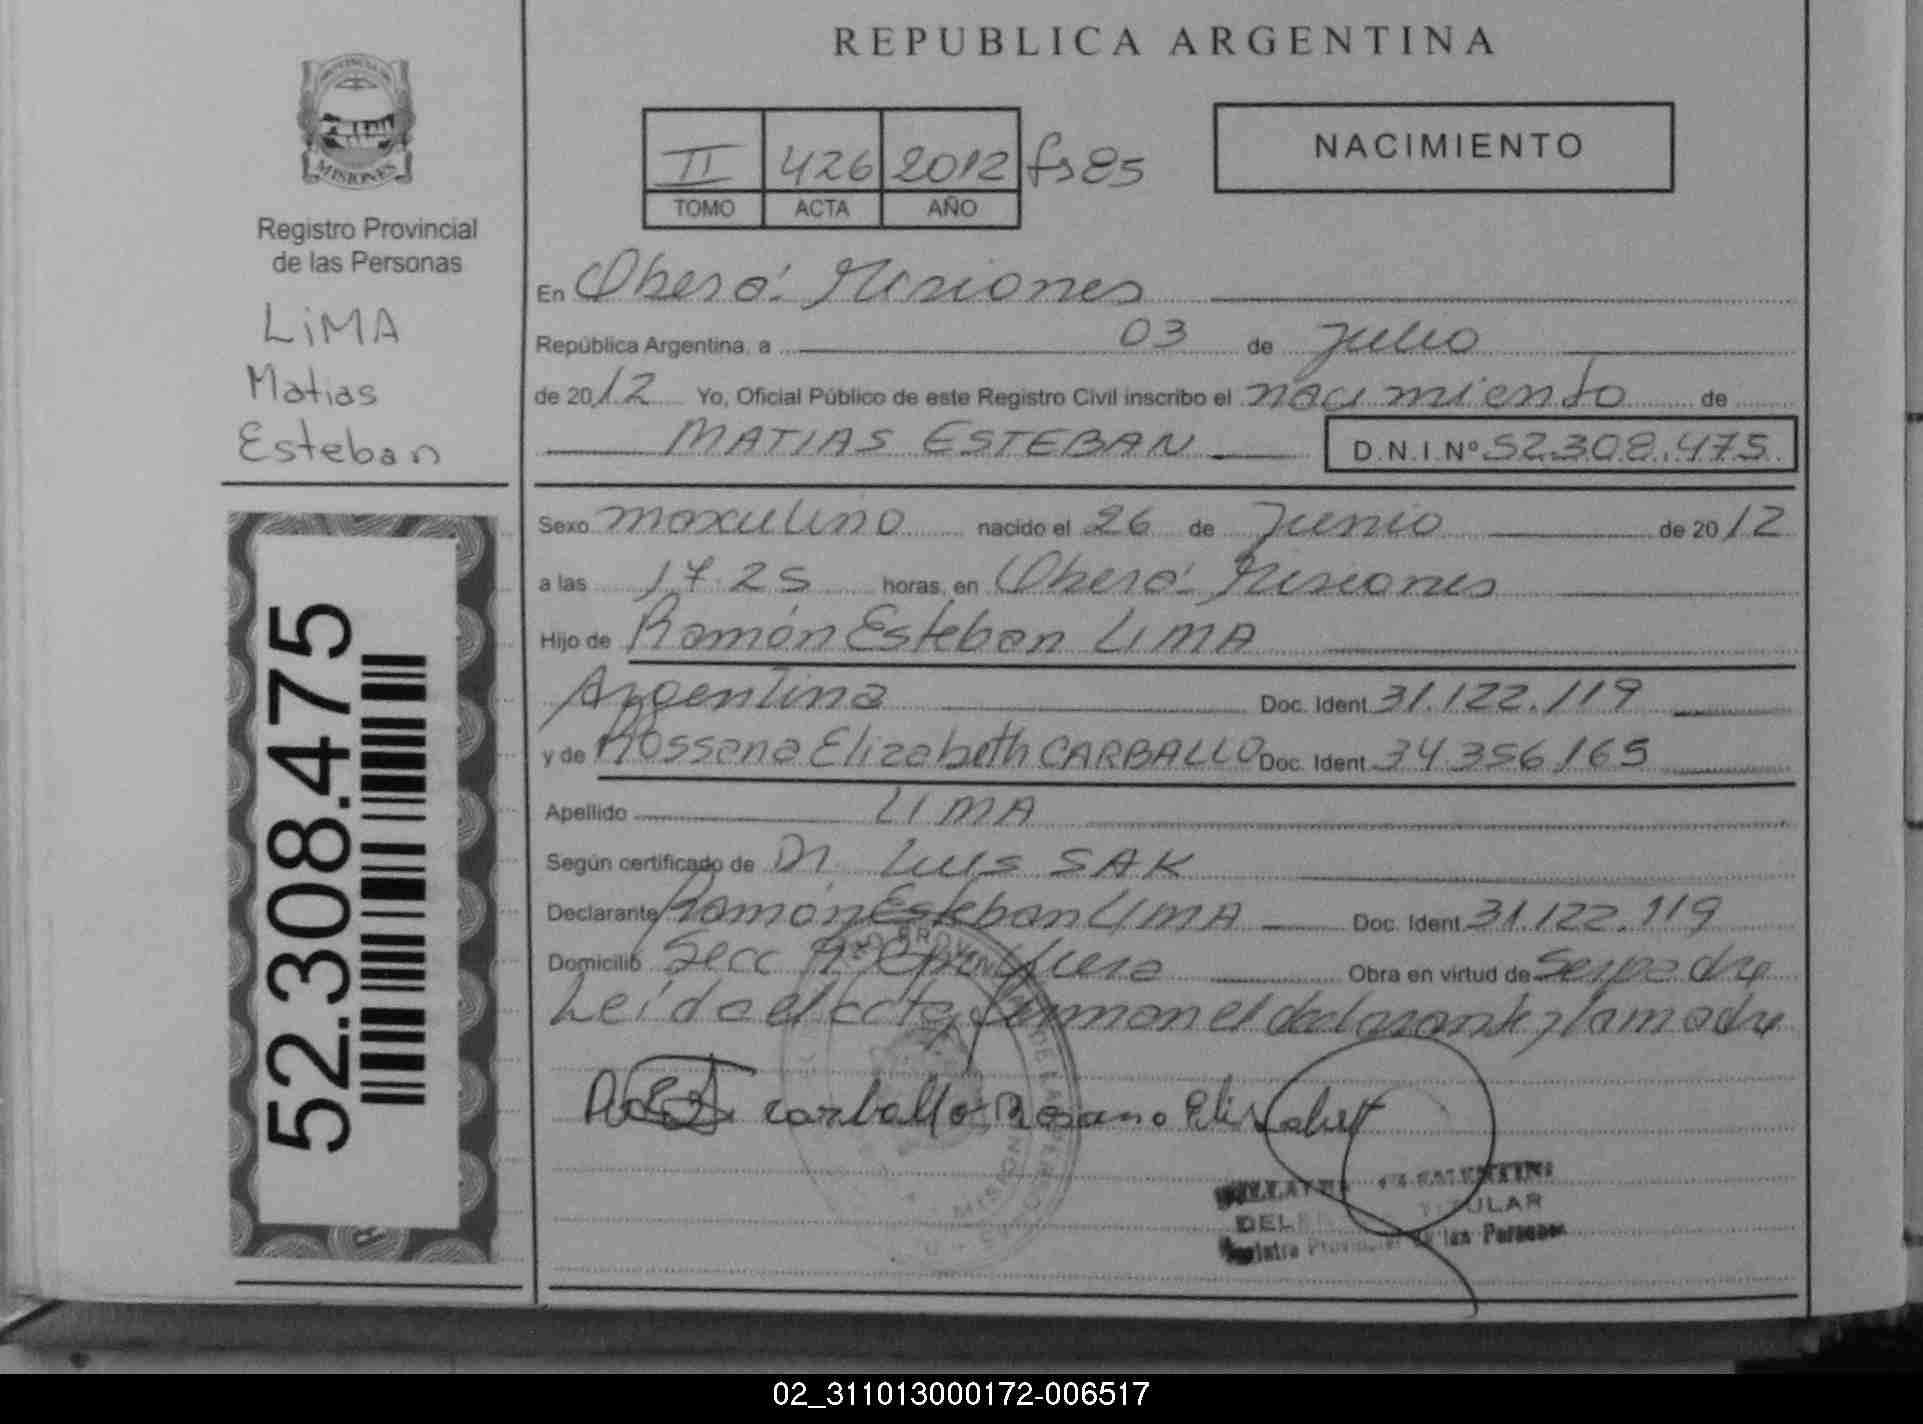 REPUBLICA ARGENTINA
PROVINCIA DE
MISIONES
Registro Provincial
de las Personas
LiMA
Matias
Esteban
52.308.475
II 426 2012 fs 85
TOMO ACTA AÑO
NACIMIENTO
En Oberá. Misiones
República Argentina, a 03 de Julio
de 2012 Yo, Oficial Público de este Registro Civil inscribo el nacimiento de
MATIAS ESTEBAN D.N.I.Nº 52.308.475
Sexo masculino nacido el 26 de Junio de 2012
a las 17.25 horas, en Oberá. Misiones
Hijo de Ramón Esteban LIMA
Argentina Doc. Ident. 31.122.119
y de Rossana Elizabeth CARBALLO Doc. Ident. 34.356.165
Apellido LIMA
Según certificado de Dr. Luis SAK
Declarante Ramón Esteban LIMA Doc. Ident. 31.122.119
Domicilio Secc Obra en virtud de Ser padre
Leída el acta, firman el declarante y la madre
Carballo Rosana Elizabet
TITULAR
Registro Provincial de las Personas
02_311013000172-006517